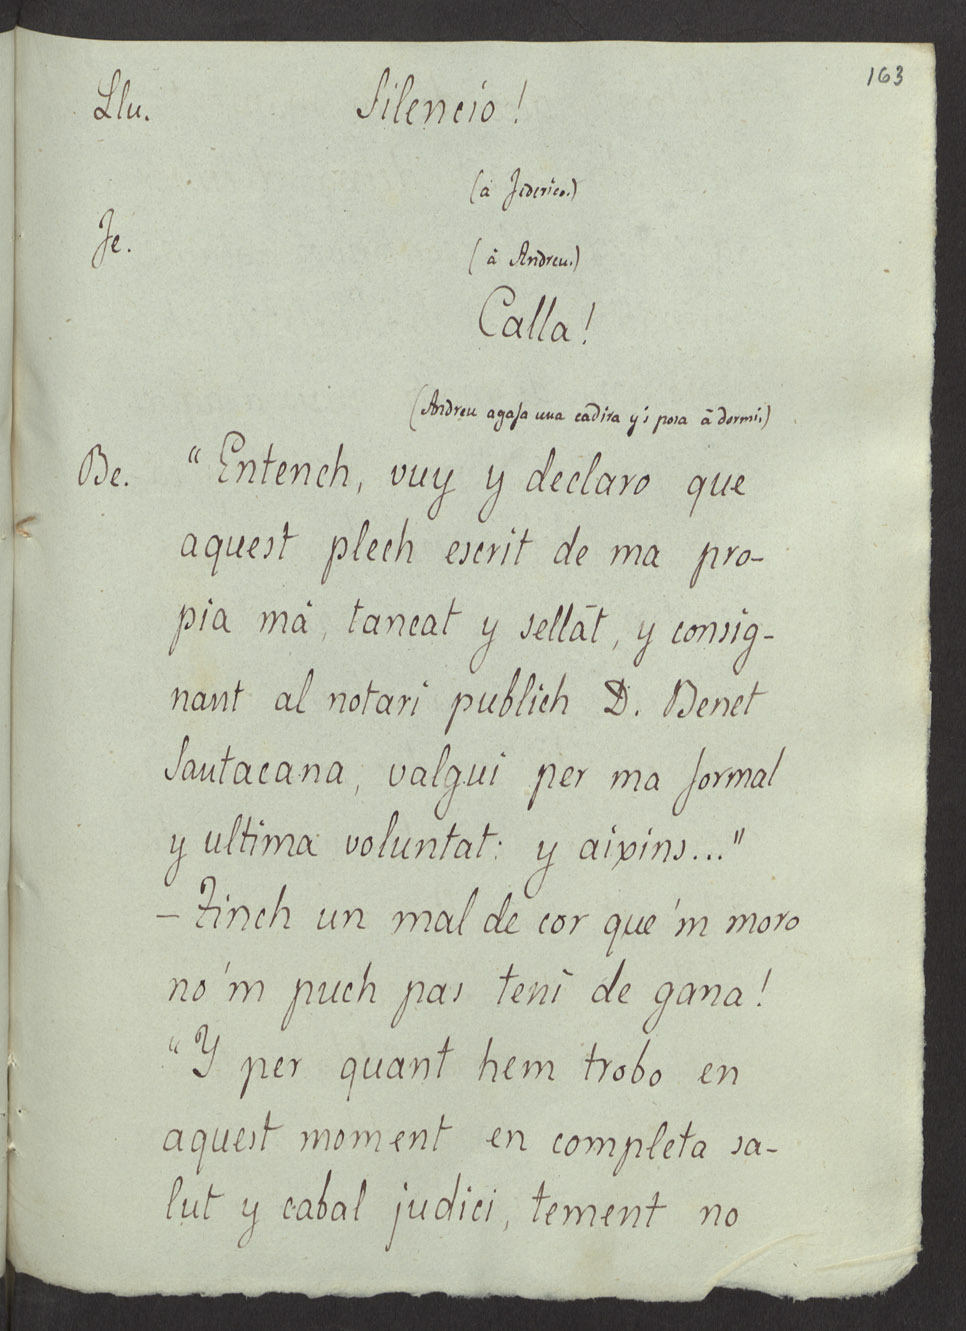 163
Llu. Silencio!
(á Federico.)
Fe.
(á Andreu.)
Calla!
(Andreu agafa una cadira y's posa á dormi.)
Be. "Entench, vuy y declaro que
aquest plech escrit de ma pro-
pia má, tancat y sellát, y consig-
nant al notari publich D. Benet
Santacana, valgui per ma formal
y ultima voluntat: y aixins..."
– Tinch un mal de cor que'm moro
no'm puch pas tení de gana!
"Y per quant hem trobo en
aquest moment en completa sa-
lut y cabal judici, tement no